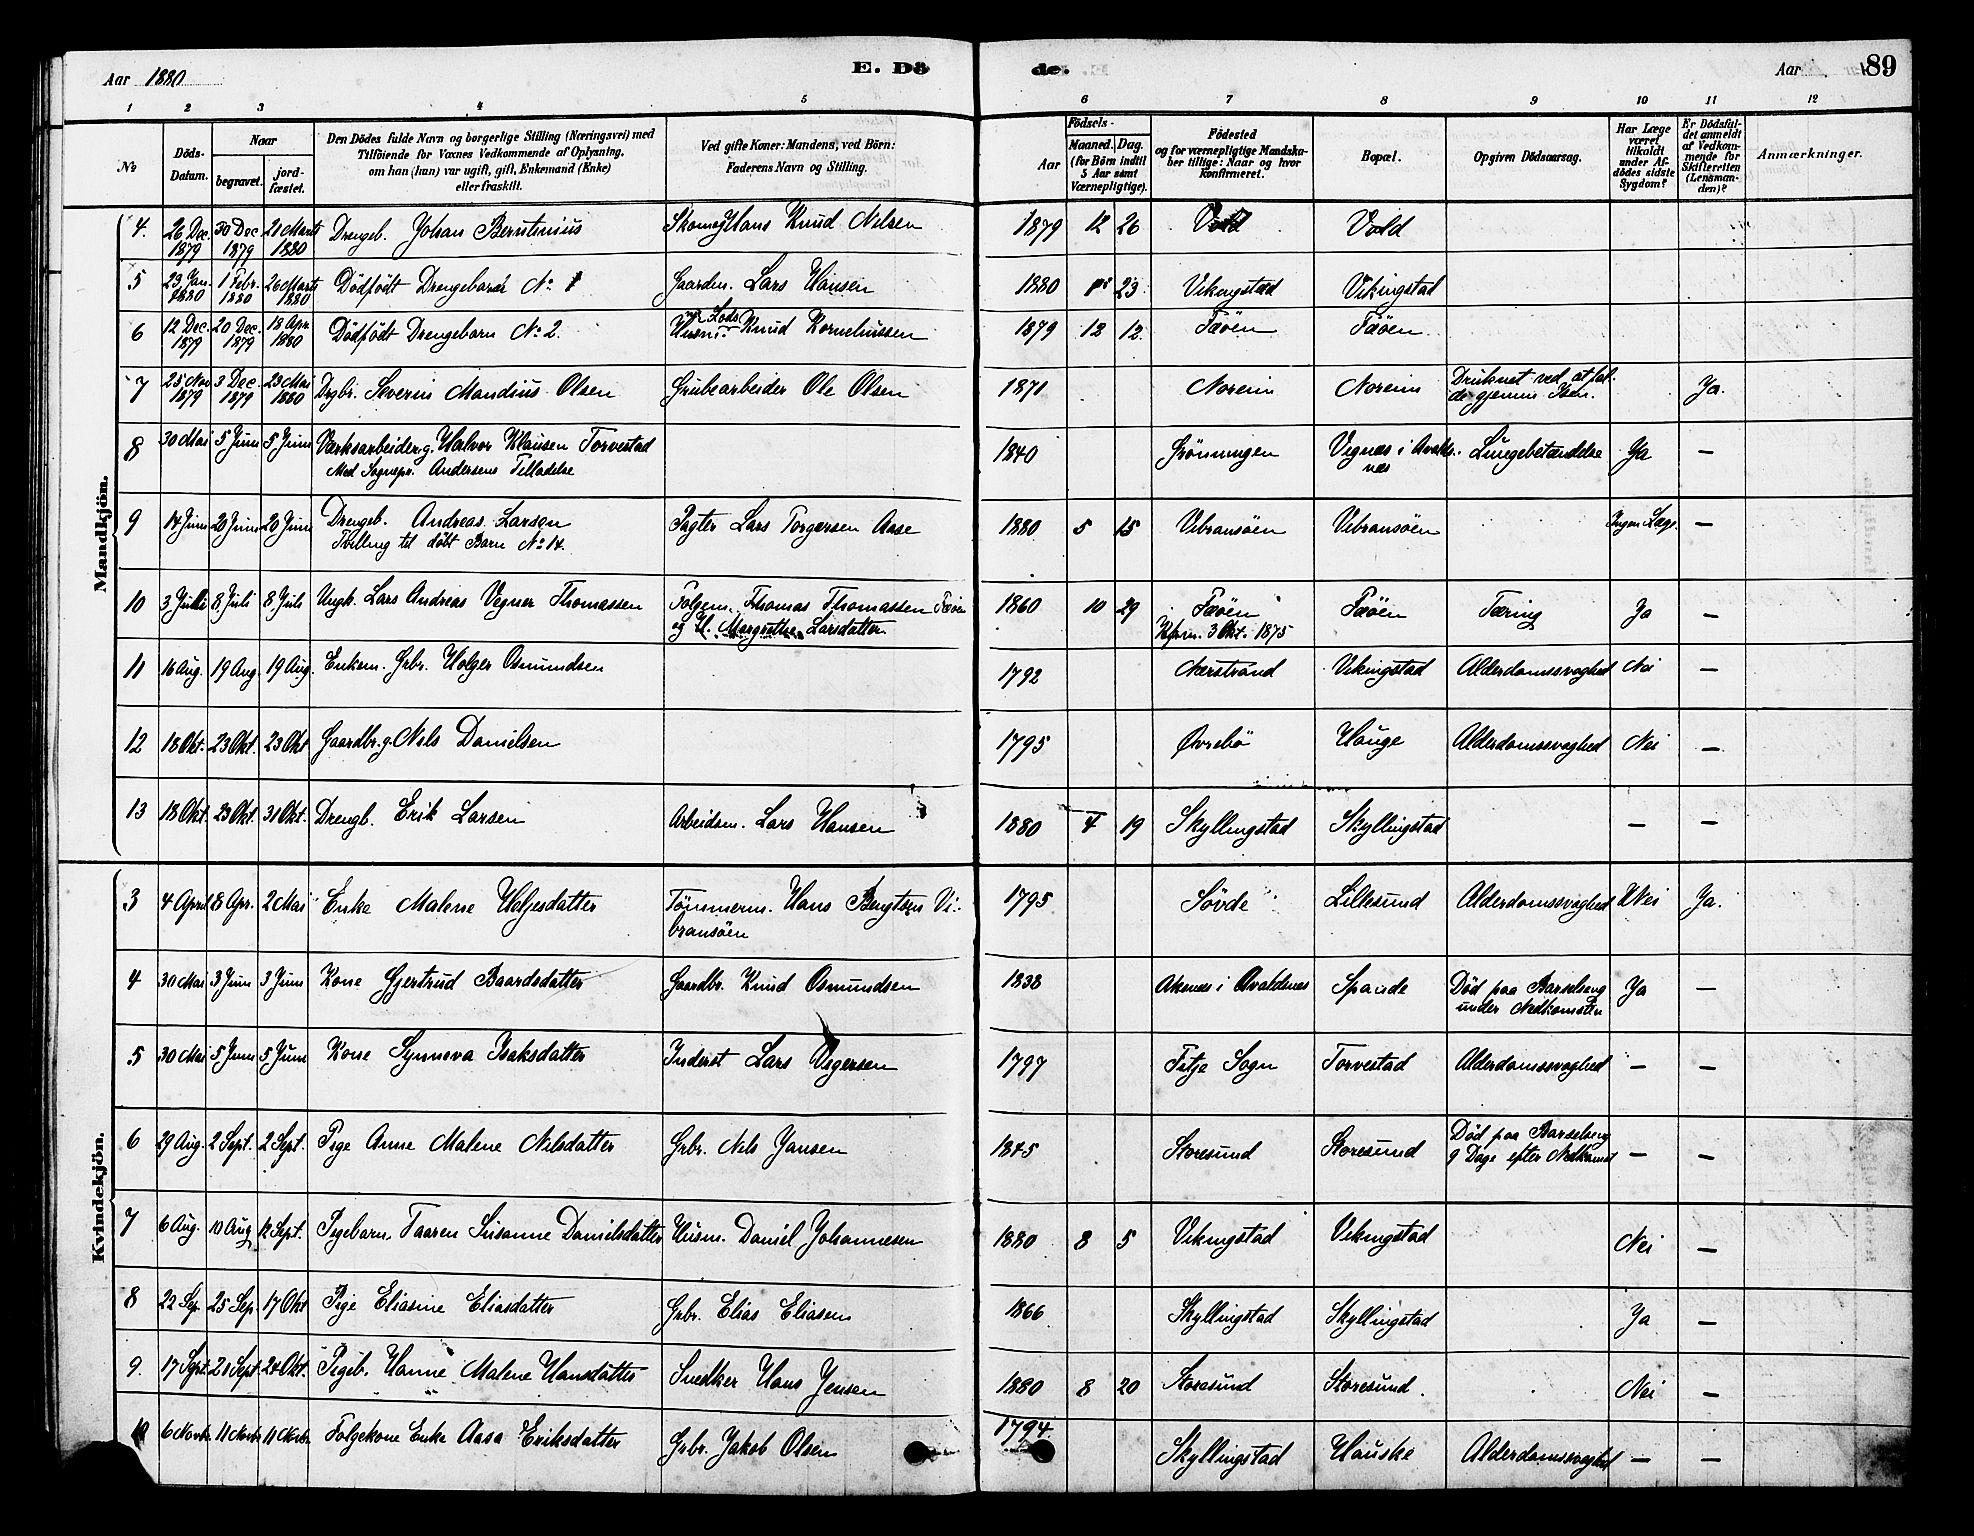 Aar 1880
E. Dö
de.
Aar
89
1 2 3 4 5 6 7 8 9 10 11 12
№
Döds-Datum.
Naar
begravet.
jord-fæstet.
Den Dödes fulde Navn og borgerlige Stilling (Næringsvei) med
Tilföiende for Voxnes Vedkommende af Oplysning,
om han (hun) var ugift, gift, Enkemand (Enke)
eller fraskilt.
Ved gifte Koner: Mandens, ved Börn:
Faderens Navn og Stilling.
Födsels-
Aar
Maaned. Dag.
(for Börn indtil
5 Aar samt
Værnepligtige).
Födested
og for værnepligtige Mandska-
ber tillige: Naar og hvor
konfirmeret.
Bopæl.
Opgiven Dödsaarsag.
Har Læge
været
tilkaldt
under Af-
dödes sidste
Sygdom?
Er Dödsfal-
det anmeldt
af Vedkom-
mende for
Skifteretten
(Lensman-
den)?
Anmærkninger.
Mandkjön.
4. 26 Dec. 1879 30 Dec 1879 21 Marts 1880 Drengeb. Johan Berntinius Skomag Hans Knud Nilsen 1879 12 26 Vold Vold
5 23 Jan. 1880 1 Febr. 1880 26 Marts 1880 Dödfödt Drengebarn No 1 Gaardm. Lars Hansen 1880 23 Vikingstad Vikingstad
6 12 Dec. 1879 20 Dec. 1879 18 Apr 1880 Dödfödt Drengebarn No 2. Husm. Lods Knud Korneliussen 1879 12 12. Fæöen Fæöen.
7 25 Nov 1879 3 Dec. 1879 23 Mai 1880 Drgbr. Severin Mandius Olsen Grubearbeider Ole Olsen 1871 Noreim Noreim Druknet ved at fal-
de gjennem Isen. Ja.
8 30 Mai 5 Juni 5 Juni Værksarbeider g. Halvor Klausen Torvestad 1840 Grönningen Vignæs i Avalds-
næs Lungebetændelse Ja —
Med Sognepr. Andersens Tilladelse
9 14 Juni 20 Juni 20 Juni Drengeb. Andreas Larsen Pagter Lars Torgersen Aase 1880 5 15 Vibransöen Vibransöen Ingen Læge —
Tvilling til döbt Barn No 14.
10 3 Juli 8 Juli 8 Juli Ungk. Lars Andreas Vegner Thomassen Folgem. Thomas Thomassen Fæöen 1860 10 29 Fæöen Fæöen Tæring Ja —
og H. Margrethe Larsdatter Kfrm. 3 Okt. 1875
11 16 Aug. 19 Aug. 19 Aug. Enkem. Grbr. Holger Osmundsen 1792 Nærstrand Vikingstad Alderdomssvaghed Nei —
12 18 Okt. 23 Okt. 23 Okt Gaardbr. g. Nils Danielsen 1795 Övrebö Hauge Alderdomssvaghed Nei —
13 18 Okt. 23 Okt. 31 Okt. Drengb. Erik Larsen Arbeidsm. Lars Hansen 1880 4 19 Skyllingstad Skyllingstad — —
Kvindekjön.
3 4 April 8 Apr. 2 Mai Enke Malene Holjesdatter Tömmerm. Hans Bengtsen Vi-
bransöen 1795 Sövde Lillesund Alderdomssvaghed Nei Ja.
4 30 Mai 3 Juni 3 Juni Kone Gjertrud Baardsdatter Gaardbr. Knud Osmundsen 1838 Aknæs i Avaldsnæs Spande Död paa Barselseng
under Nedkomsten Ja —
5 30 Mai 5 Juni 5 Juni Kone Synneva Isaksdatter Inderst Lars Vegersen 1797 Fitje Sogn Torvestad Alderdomssvaghed — —
6 29 Aug. 2 Sept. 2 Sept. Pige Anne Malene Nilsdatter Grbr. Nils Jansen 1845 Storesund Storesund Död paa Barselseng
9 Dage efter Nedkomst — —
7 6 Aug. 10 Aug 12 Sept. Pigebarn Taaren Susanne Danielsdatter Husm. Daniel Johannesen 1880 8 5 Vikingstad Vikingstad Nei —
8 22 Sep. 25 Sep. 17 Okt Pige Eliasine Eliasdatter Grbr. Elias Eliasen 1866 Skyllingstad Skyllingstad Ja —
9. 17 Sept. 21 Sept. 24 Okt. Pigeb. Hanne Malene Hansdatter Snedker Hans Jensen 1880 8 20 Storesund Storesund. Nei —
10 6 Novbr. 11 Novbr. 11 Novbr. Folgekone Enke Aasa Eriksdatter Grbr. Jakob Olsen 1794 Skyllingstad Hauske Alderdomssvaghed — —